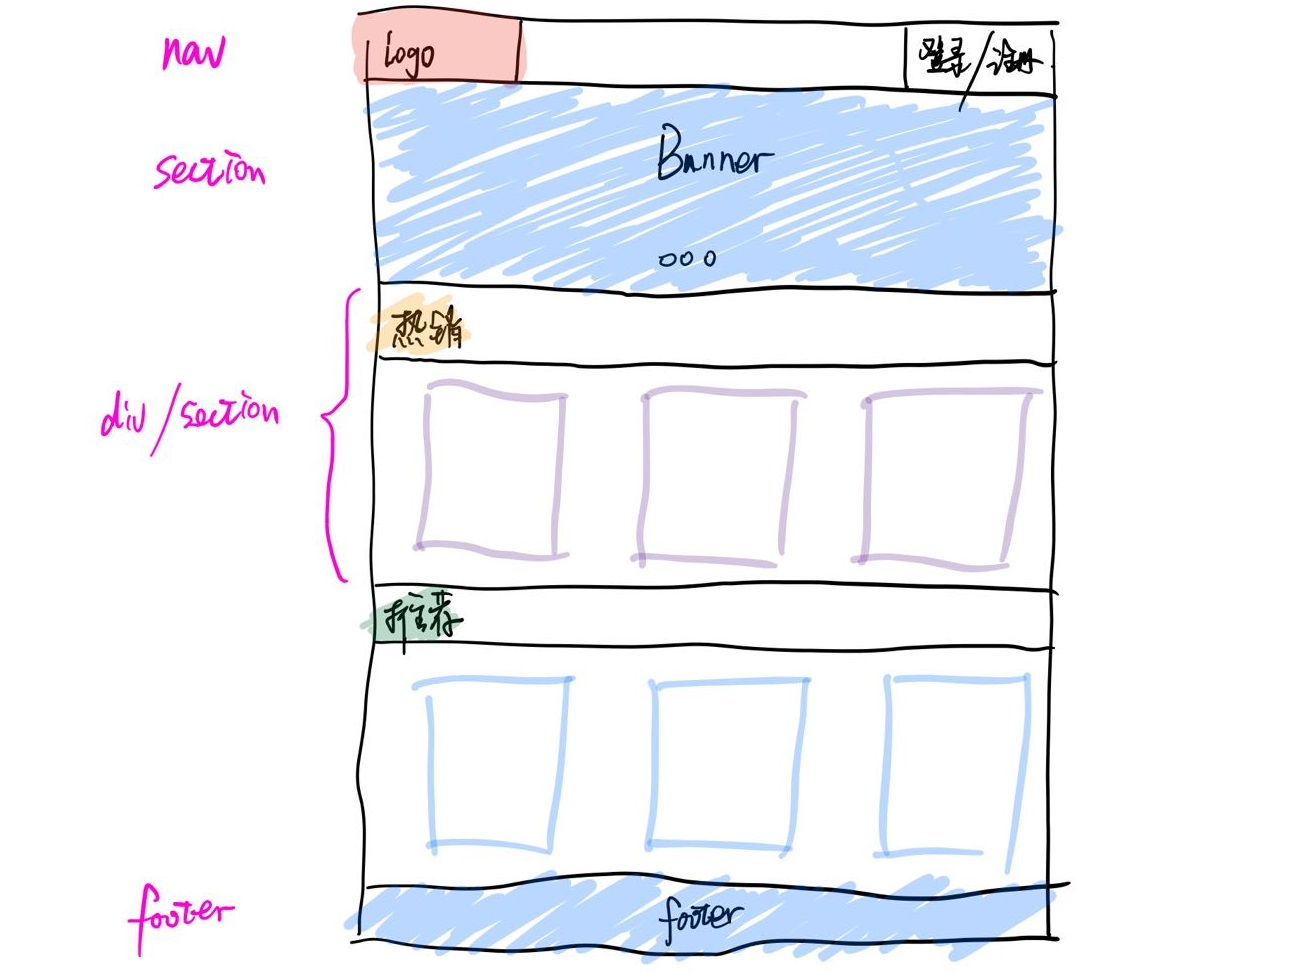 nav
Logo
登录/注册
section
Banner
热销
div/section
推荐
footer
footer